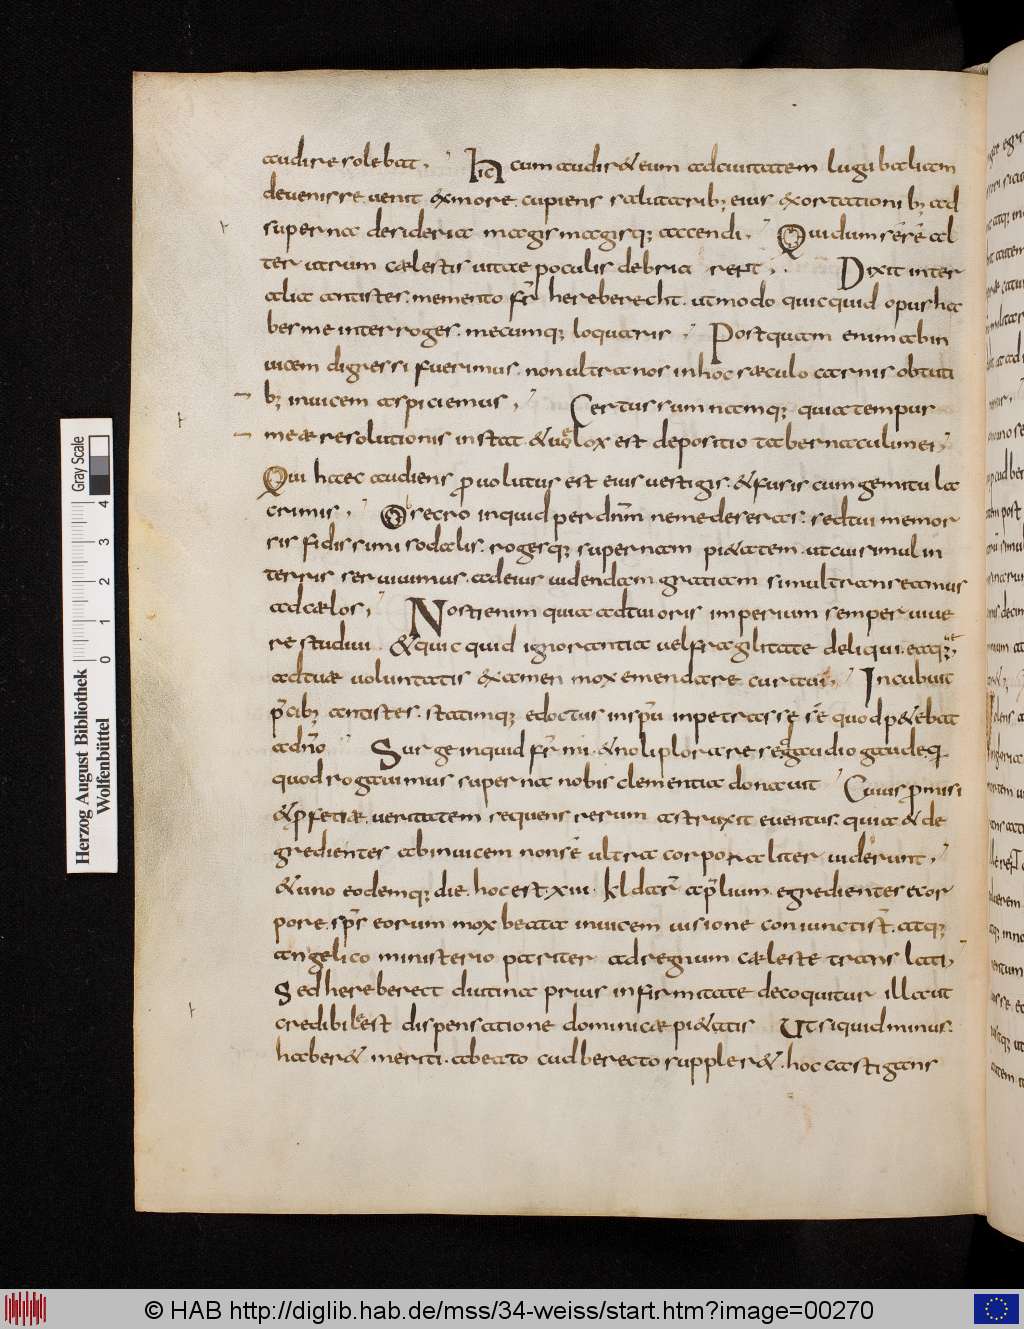 audire solebat. hic cum audir& eum ad ciuitatem lugubaliam
deuenisse uenit ex more cupiens salutarib; eius exortationib; ad
superna desideria magis magisq; accendi. Qui dum sese al
ter utrum cælestis uitae poculis debria rent. Dixit inter
alia antistes. memento fr̄ hereberecht. ut modo quicquid opus ha
bes me interroges. mecumq; loquaris. Postquam enim abin
uicem digressi fuerimus. non ultra nos in hoc sæculo carnis obtuti
b; inuicem aspiciemus. Certus sum namq; quia tempus
meæ resolutionis instat & uelox est depositio tabernaculi mei.
Qui haec audiens prouolutus est eius uestigiis. & fusis cum gemitu la
crimis. Obsecro inquid per dn̄m ne me deseras. sed tui memor
sis fidissimi sodalis. rogesq; supernam pi&atem. ut cui simul in
terris seruiuimus. ad eius uidendam gratiam simul transeamus
ad cælos. Nosti enim quia ad tui oris imperium semper uiue
re studui & quicquid ignorantia uel fragilitate deliqui. eaq;
ad tuæ uoluntatis examen mox emendare curaui. Incubuit
p̄cib; antistes. statimq; edoctus in sp̄u inpetrasse se quod p&ebat
a dn̄o Surge inquid fr̄ mi & noli plorare sed gaudio gaude q
quod rogauimus superna nobis clementia donauit Cuius promisi
& profetiæ. ueritatem sequens rerum astruxit euentus. quia & de
gredientes abinuicem non se ultra corporaliter uiderunt.
& uno eodemq; die. hoc est. xiii. kl datr̄ aprlium. egredientes e cor
pore. sp̄s eorum mox beata inuicem uisione coniunctist̄. atq;
angelico ministerio pariter ad regnum cæleste translati.
Sed hereberect diutina prius infirmitate decoquitur illa ut
credibile est dispensatione dominicæ pi&atis Ut siquid minus.
haber& meriti. a beato cudberecto suppler& . hoc castigans
Herzog August Bibliothek
Wolfenbüttel
Gray Scale
0 1 2 3 4
© HAB http://diglib.hab.de/mss/34-weiss/start.htm?image=00270